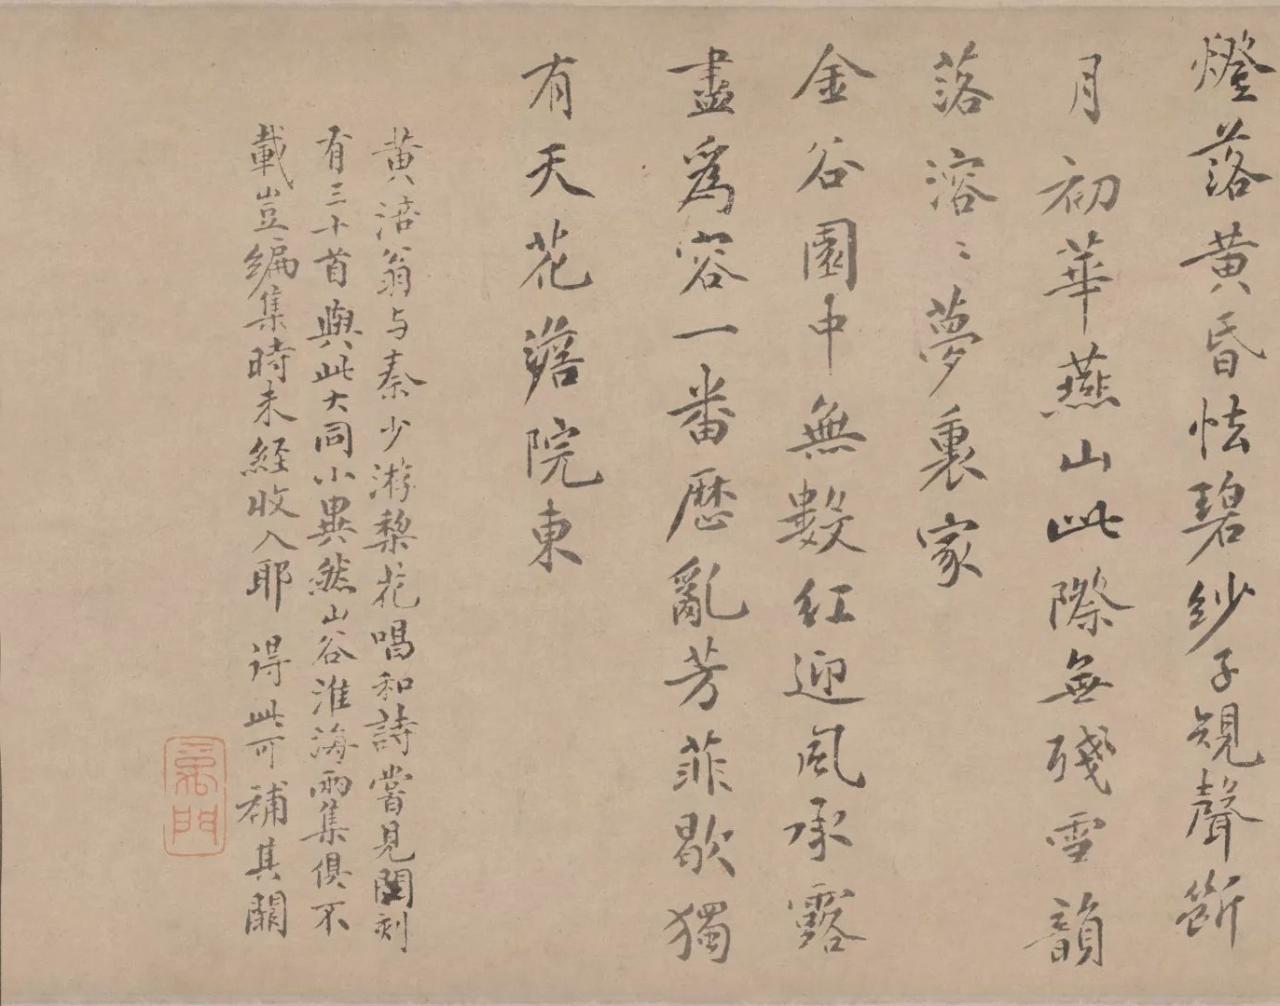 燈落黄昏怯碧紗子規聲斷
月初華燕山此際無殘雪韻
落溶〻夢裏家
金谷園中無數紅迎風承露
盡為容一番歷亂芳菲歇獨
有天花澹院東
黄涪翁与秦少游梨花唱和詩嘗見閣刻
有三十首與此大同小異然山谷淮海兩集俱不
載豈編集時未經收入耶 得此可補其闕